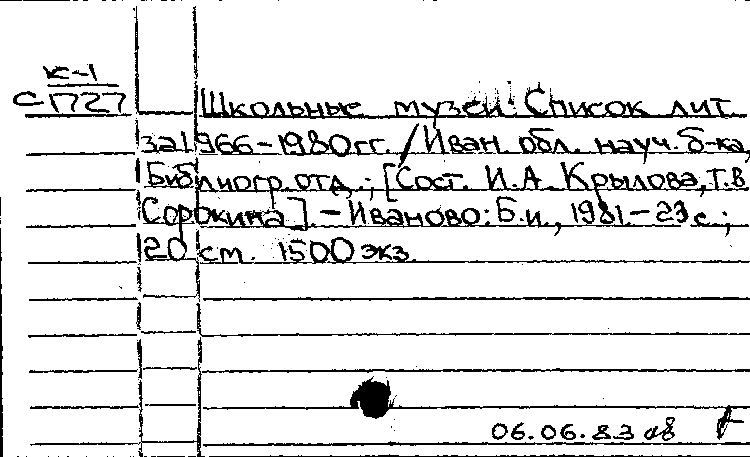 К-1
С-1727
Школьные музеи: Список лит.
за 1966-1980 гг. / Иван. обл. науч. б-ка,
Библиогр. отд.; [Сост. И.А. Крылова, Т.В.
Сорокина]. - Иваново: Б.и., 1981. - 23 с.;
20 см. 1500 экз.
06.06.83